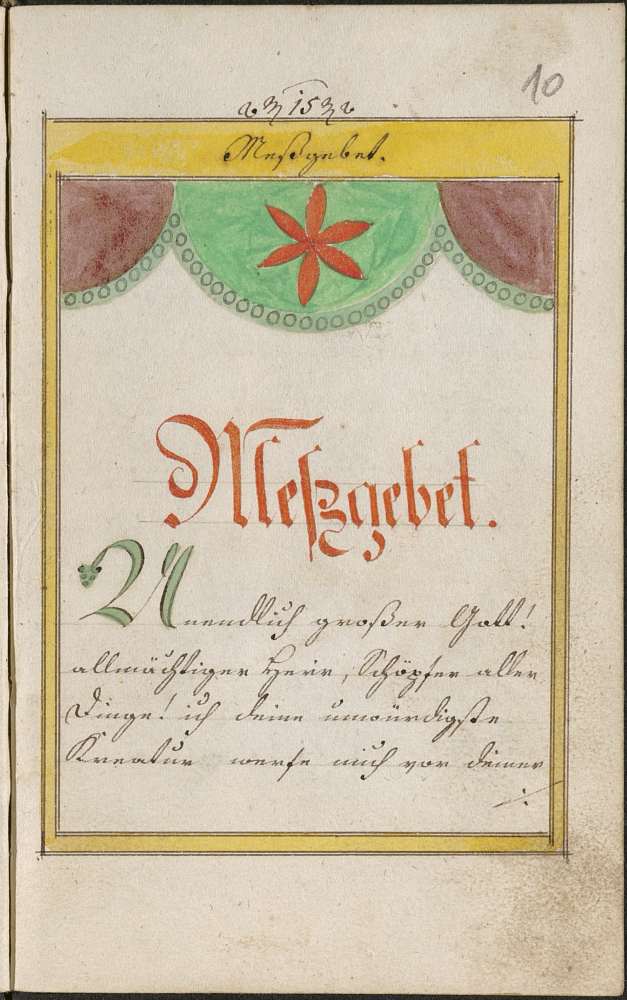 10
15
Meßgebet.
Meßgebet.
Unendlich großer Gott!
allmächtiger Herr, Schöpfer aller
Dinge! ich deine unwürdigste
Kreatur werfe mich vor deiner